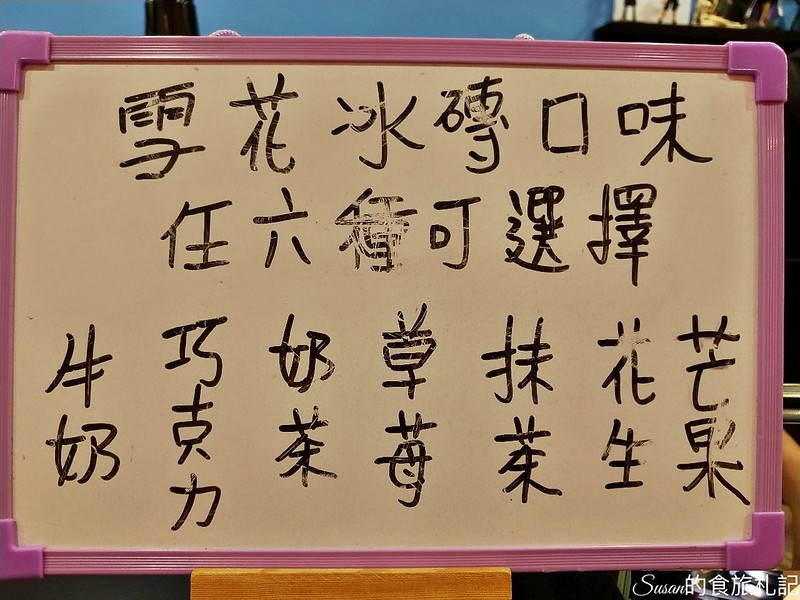 雪花冰磚口味
任六種可選擇
牛奶
巧克力
奶茶
草莓
抹茶
花生
芒果
Susan的食旅札記